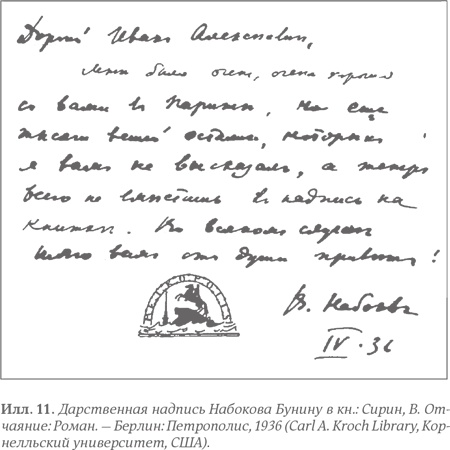 Дорогой Иван Алексеевич,
мне было очень, очень хорошо
с вами в Париже, но еще
тысяч вещей осталось, которых
я вам не высказалъ, а теперь
всего не вместишь в надпись на
книжке. Во всяком случае
шлю вам от души приветы!
В. Набоковъ
IV · 36
Илл. 11. Дарственная надпись Набокова Бунину в кн.: Сирин, В. От-
чаяние: Роман. — Берлин: Петрополис, 1936 (Carl A. Kroch Library, Кор-
нелльский университет, США).